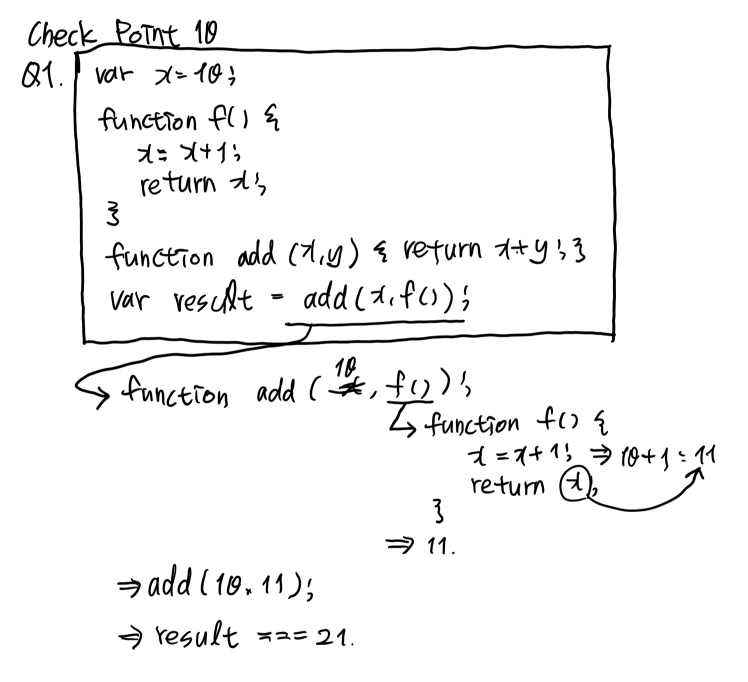 Check Point 10
Q1. var x=10;
function f() {
x= x+1;
return x;
}
function add (x,y) { return x+y; }
var result = add(x,f());
→ function add (x, f());
10
→ function f() {
x=x+1; ⇒ 10+1=11
return x;
}
⇒ 11.
⇒ add(10, 11);
⇒ result === 21.